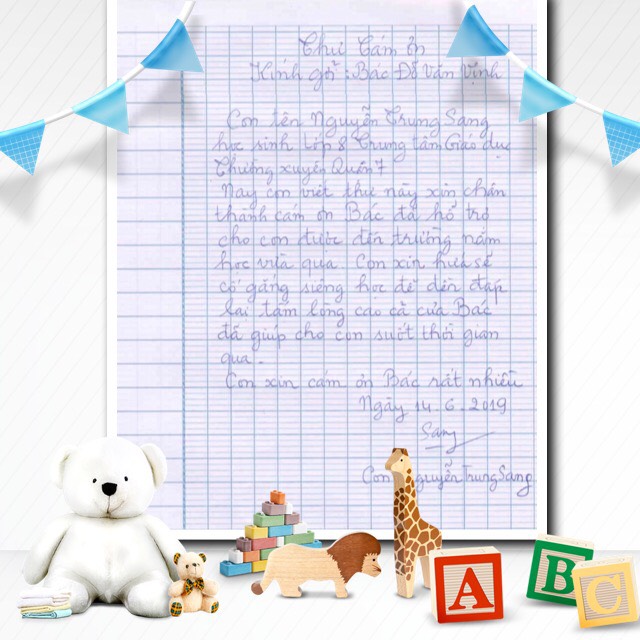 Thư Cám ơn
Kính gởi : Bác Đỗ Văn Vịnh
Con tên Nguyễn Trung Sang
học sinh Lớp 8 Trung tâm Giáo dục
Thường xuyên Quận 7
Nay con viết thư này xin chân
thành cam ơn Bác đã hổ trợ
cho con được đến trường năm
học vừa qua Con xin hứa sẽ
cố gắng siêng học để đền đáp
lại tấm lòng cao cả của Bác
đã giúp cho con suốt thời gian
qua.
Con xin cám ơn Bác rất nhiều
Ngày 14.6.2019
Sang
Con Nguyễn Trung Sang
A B C